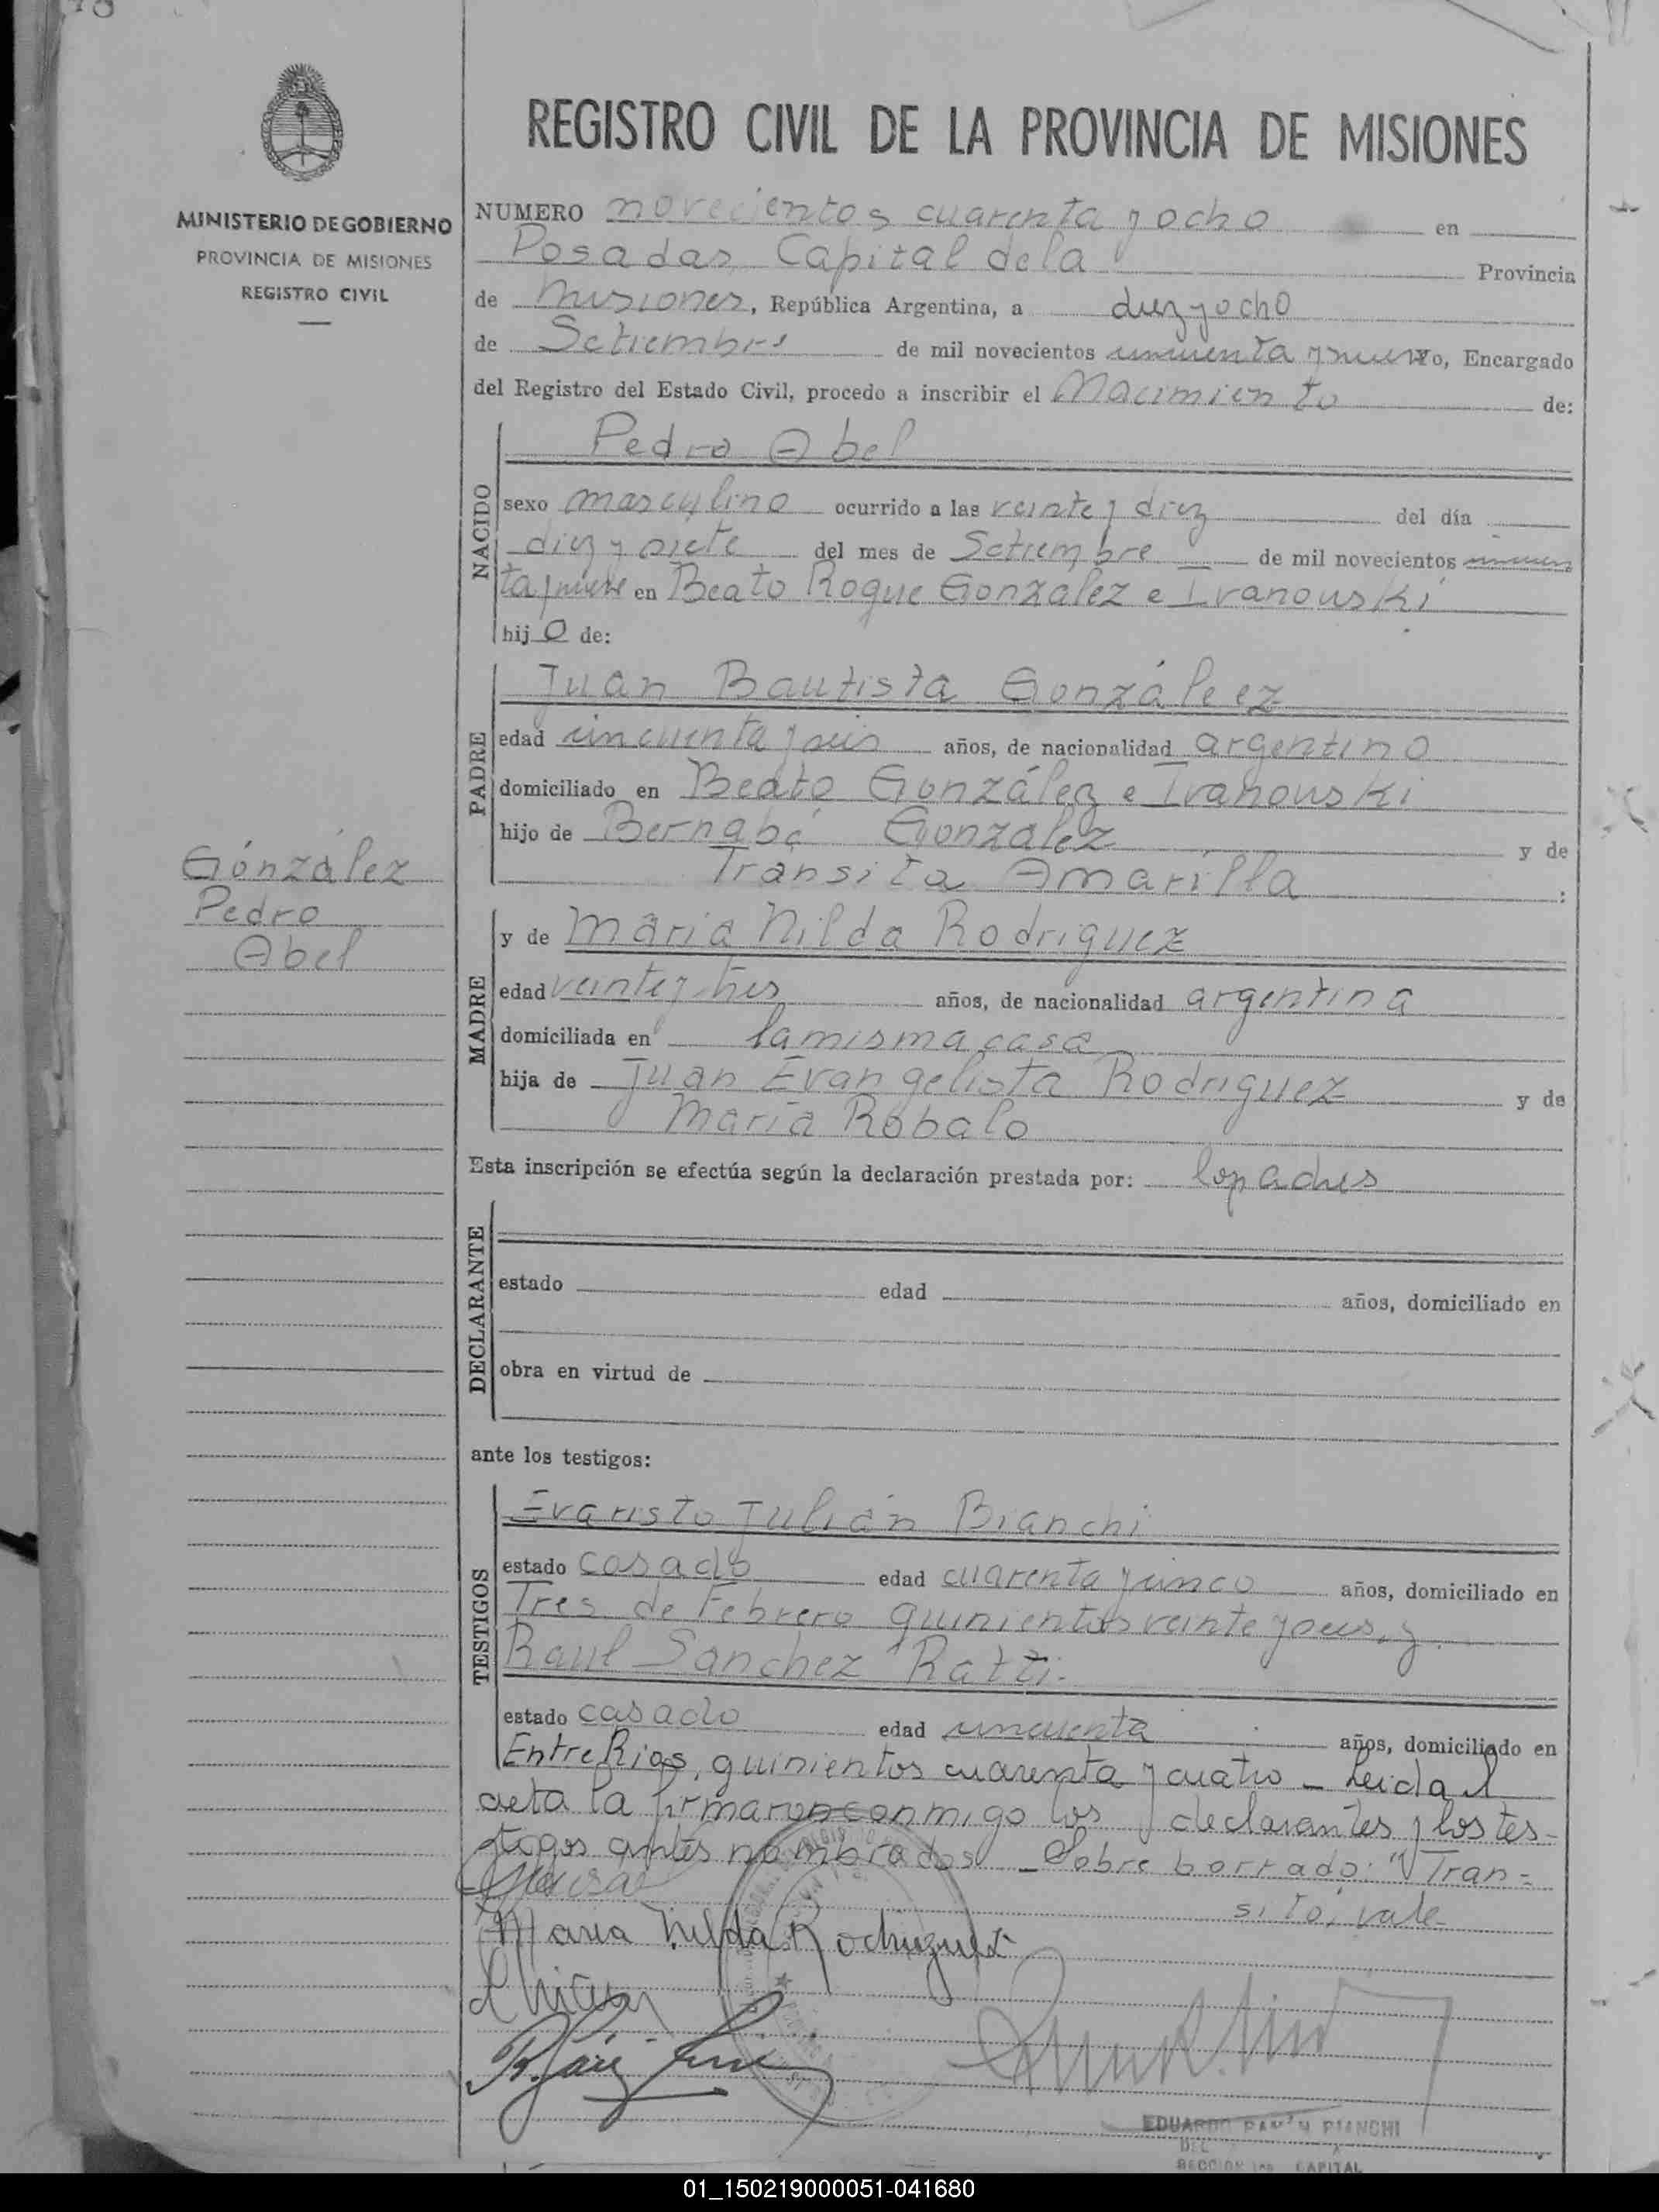 MINISTERIO DE GOBIERNO
PROVINCIA DE MISIONES
REGISTRO CIVIL
González
Pedro
Abel
REGISTRO CIVIL DE LA PROVINCIA DE MISIONES
NUMERO novecientos cuarenta y ocho en
Posadas, Capital de la Provincia
de Misiones, República Argentina, a diez y ocho
de Setiembre de mil novecientos cincuenta y nueve yo, Encargado
del Registro del Estado Civil, procedo a inscribir el Nacimiento de:
NACIDO
Pedro Abel
sexo masculino ocurrido a las veinte y diez del día
diez y siete del mes de Setiembre de mil novecientos cincuen
ta y nueve en Beato Roque González e Ivanouski
hijo de:
PADRE
Juan Bautista Gonzáleez
edad cincuenta y seis años, de nacionalidad argentino
domiciliado en Beato González e Ivanouski
hijo de Bernabé González y de
Transita Amarilla :
MADRE
y de María Nilda Rodriguez
edad veinte y tres años, de nacionalidad argentina
domiciliada en la misma casa
hija de Juan Evangelista Rodriguez y de
María Robalo
Esta inscripción se efectúa según la declaración prestada por: los padres
DECLARANTE
estado edad años, domiciliado en
obra en virtud de
ante los testigos:
TESTIGOS
Evaristo Julián Bianchi
estado casado edad cuarenta y cinco años, domiciliado en
Tres de Febrero quinientos veinte y seis, y
Raul Sanchez Ratti
estado casado edad cincuenta años, domiciliado en
Entre Rios, quinientos cuarenta y cuatro - Leida el
acta la firmaron conmigo los declarantes y los tes-
tigos antes nombrados - Sobre borrado: "Tran=
sito, vale
Maria Nilda Rodriguez
EDUARDO RAMÓN BIANCHI
SECCION 1ra CAPITAL
01_150219000051-041680